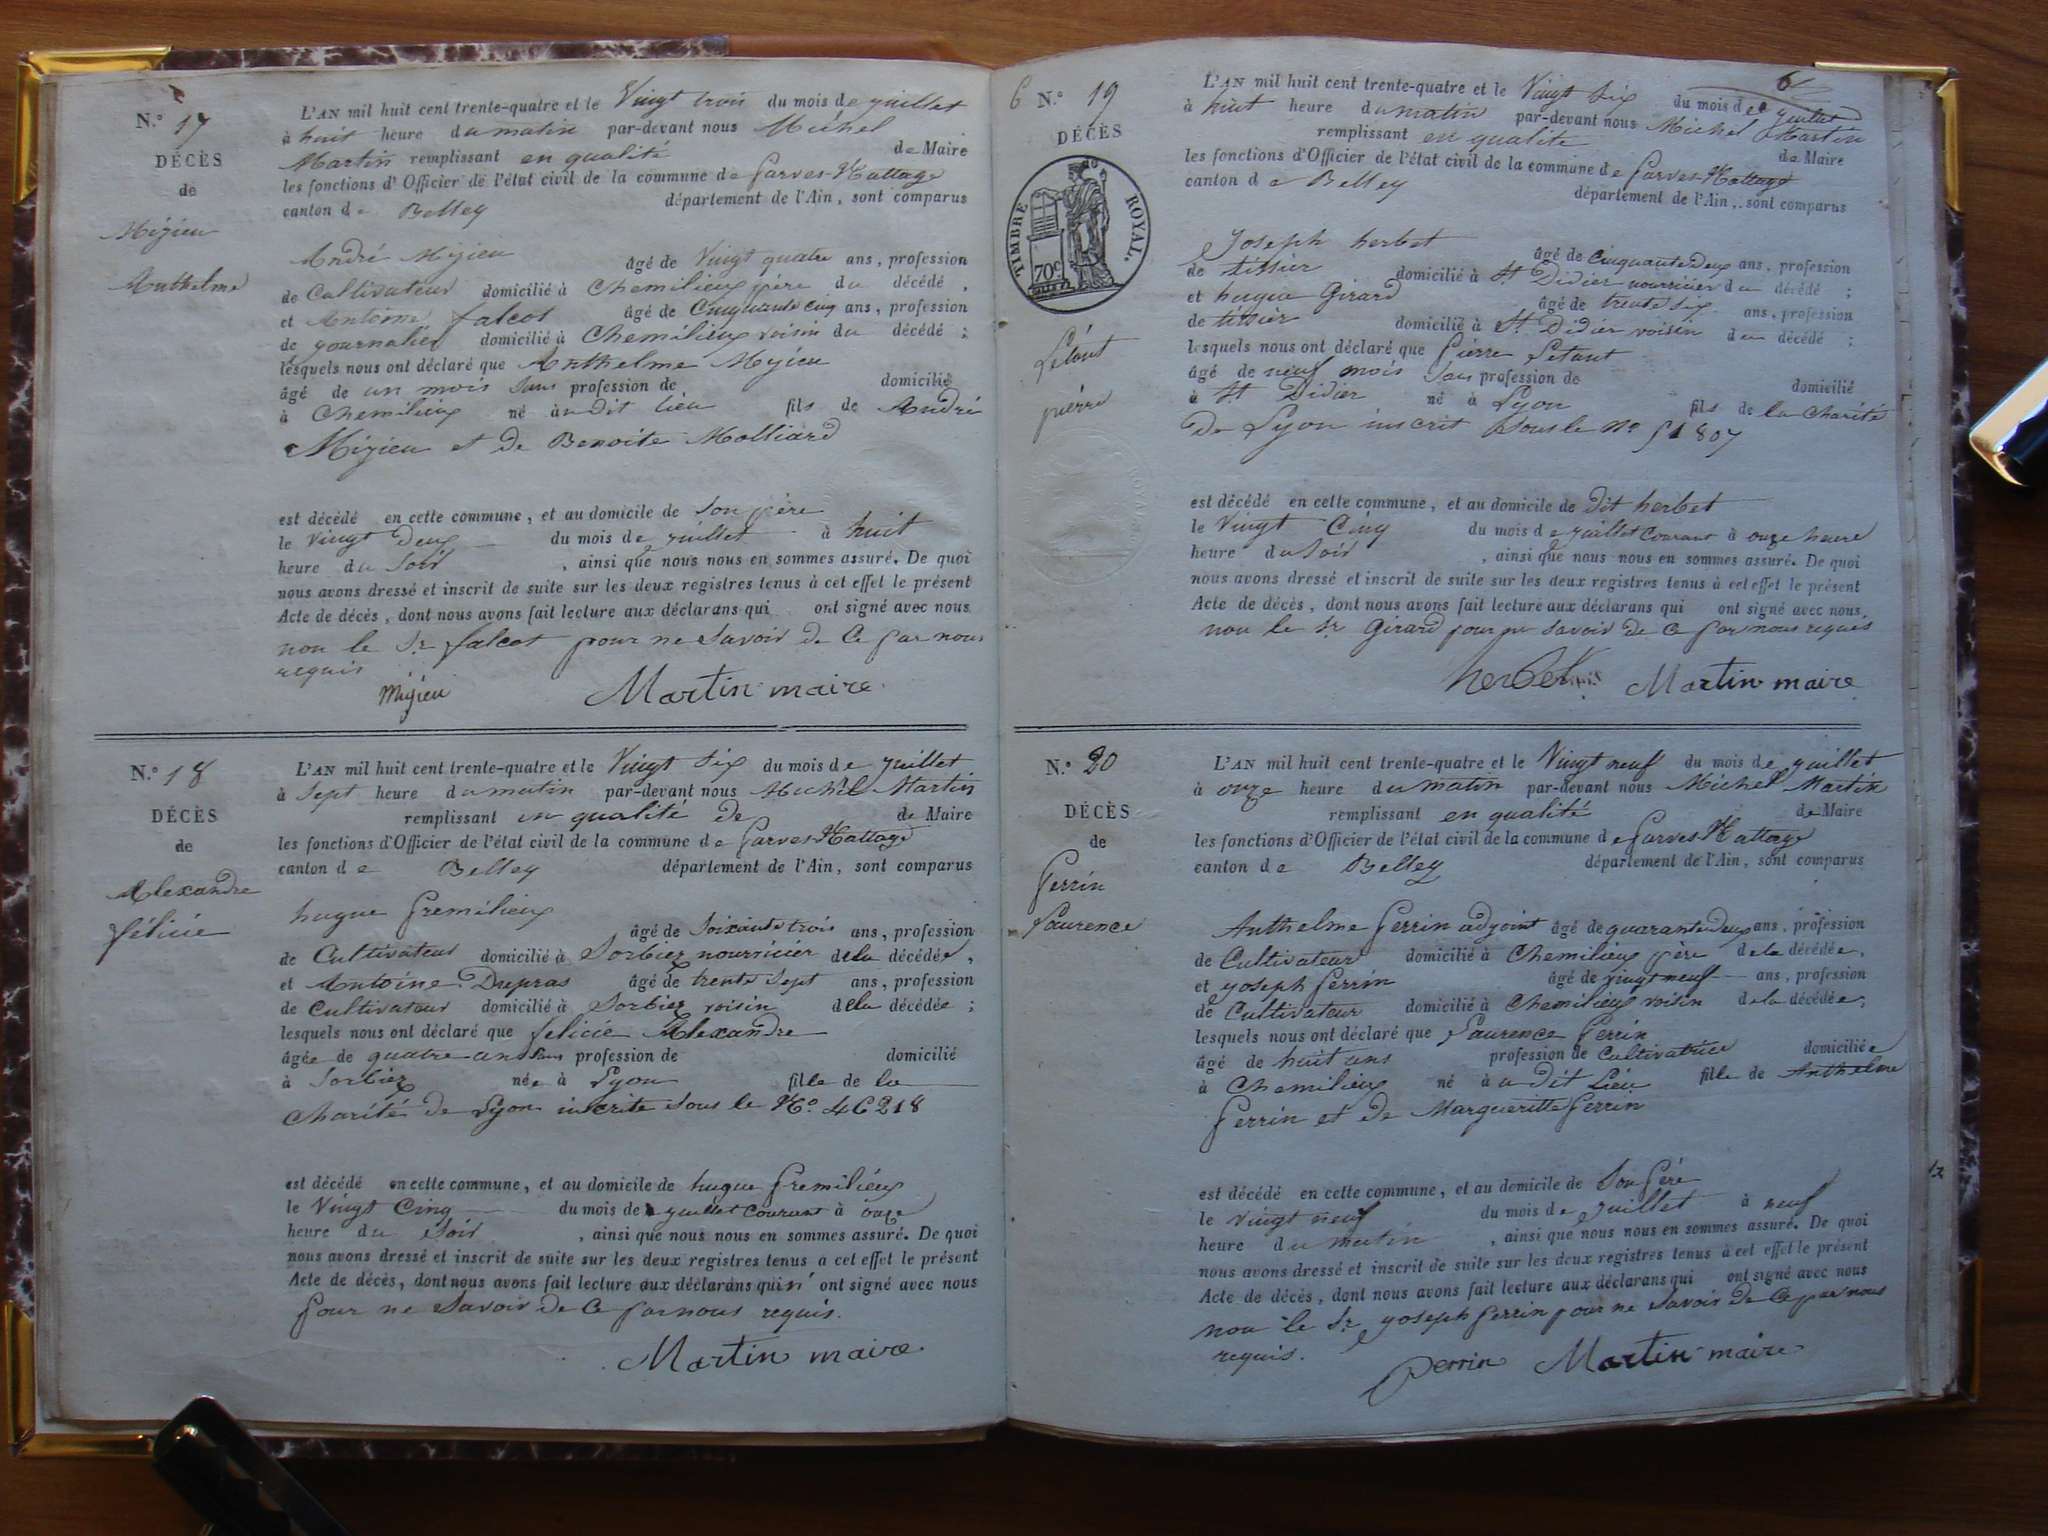 N.° 17
DÉCÈS
de
Mizieu
Anthelme
L'AN mil huit cent trente-quatre et le Vingt trois du mois de juillet
à huit heure du matin par-devant nous Michel
Martin remplissant en qualité de Maire
les fonctions d'Officier de l'état civil de la commune de Parves-Nattage
canton de Belley département de l'Ain, sont comparus
André Mizieu âgé de Vingt quatre ans, profession
de Cultivateur domicilié à Chemilieu père du décédé,
et Antoine falcot âgé de Cinquante cinq ans, profession
de journalier domicilié à Chemilieu voisin du décédé;
lesquels nous ont déclaré que Anthelme Mizieu
âgé de un mois sans profession de domicilié
à Chemilieu né à udit lieu fils de André
Mizieu et de Benoite Molliard
est décédé en cette commune, et au domicile de son père
le Vingt deux du mois de juillet à huit
heure du soir, ainsi que nous nous en sommes assuré. De quoi
nous avons dressé et inscrit de suite sur les deux registres tenus à cet effet le présent
Acte de décès, dont nous avons fait lecture aux déclarans qui ont signé avec nous
non le Sr falcot pour ne savoir de ce par nous
requis
Mizieu Martin maire
N.° 18
DÉCÈS
de
Alexandre
félicie
L'AN mil huit cent trente-quatre et le Vingt six du mois de juillet
à sept heure du matin par-devant nous Michel Martin
remplissant en qualité de de Maire
les fonctions d'Officier de l'état civil de la commune de Parves-Nattage
canton de Belley département de l'Ain, sont comparus
hugue Premilieu âgé de soixante trois ans, profession
de Cultivateur domicilié à Sorbiez nourricier dela décédée,
et Antoine Dupras âgé de trente sept ans, profession
de Cultivateur domicilié à Sorbiez voisin dela décédée;
lesquels nous ont déclaré que felicie Alexandre
âgée de quatre ans sans profession de domicilié
à Sorbiez née à Lyon fille de la
Charité de Lyon inscrite sous le No. 46218
est décédé en cette commune, et au domicile de hugue Premilieu
le Vingt Cinq du mois de juillet courant à onze
heure du soir, ainsi que nous nous en sommes assuré. De quoi
nous avons dressé et inscrit de suite sur les deux registres tenus à cet effet le présent
Acte de décès, dont nous avons fait lecture aux déclarans qui n'ont signé avec nous
pour ne savoir de ce par nous requis.
Martin maire
6 6
N.° 19
DÉCÈS
TIMBRE ROYAL.
70c.
Létant
pierre
L'AN mil huit cent trente-quatre et le Vingt six du mois de juillet
à huit heure du matin par-devant nous Michel Martin
remplissant en qualité de Maire
les fonctions d'Officier de l'état civil de la commune de Parves-Nattage
canton de Belley département de l'Ain, sont comparus
Joseph herbet âgé de Cinquante Deux ans, profession
de tissier domicilié à St Didier nourricier du décédé;
et hugue Girard âgé de trente six ans, profession
de tissier domicilié à St Didier voisin du décédé;
lesquels nous ont déclaré que Pierre Letant
âgé de neuf mois sans profession de domicilié
à St Didier né à Lyon fils de la Charité
De Lyon inscrit sous le No 51807
est décédé en cette commune, et au domicile de Dit herbet
le Vingt Cinq du mois de juillet courant à onze heure
heure du soir, ainsi que nous nous en sommes assuré. De quoi
nous avons dressé et inscrit de suite sur les deux registres tenus à cet effet le présent
Acte de décès, dont nous avons fait lecture aux déclarans qui ont signé avec nous,
non le Sr Girard pour ne savoir de ce par nous requis
herbet Martin maire
N.° 20
DÉCÈS
de
Perrin
Laurence
L'AN mil huit cent trente-quatre et le Vingt neuf du mois de juillet
à onze heure du matin par-devant nous Michel Martin
remplissant en qualité de Maire
les fonctions d'Officier de l'état civil de la commune de Parves-Nattage
canton de Belley département de l'Ain, sont comparus
Anthelme Perrin adjoint âgé de quarante Deux ans, profession
de Cultivateur domicilié à Chemilieu père dela décédée,
et joseph Perrin âgé de vingt neuf ans, profession
de Cultivateur domicilié à Chemilieu voisin dela décédée;
lesquels nous ont déclaré que Laurence Perrin
âgé de huit ans profession de Cultivatrice domiciliée
à Chemilieu né à u dit Lieu fille de Anthelme
Perrin et de Margueritte Perrin
est décédé en cette commune, et au domicile de son Père
le vingt neuf du mois de juillet à neuf
heure du matin, ainsi que nous nous en sommes assuré. De quoi
nous avons dressé et inscrit de suite sur les deux registres tenus à cet effet le présent
Acte de décès, dont nous avons fait lecture aux déclarans qui ont signé avec nous
non le Sr joseph Perrin pour ne savoir de ce par nous
requis.
perrin Martin maire